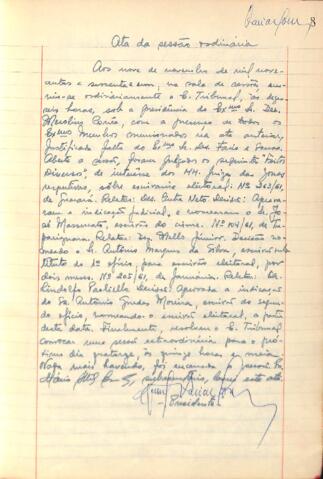 8
Ata da sessão ordinária
Aos nove de novembro de mil nove-
centos e sessenta e um, na sala de sessões reu-
niu-se ordinariamente o E. Tribunal, às dezes-
seis horas, sob a presidência do Exmo Sr. Des.
com a presença de todos os
Exmos Membros mencionados na ata anterior,
justificada falta do Exmo Sr. Des.
Aberta a sessão, foram julgados os seguintes "Feitos
Diversos", de interesse dos MM. Juízes das zonas
respectivas, sobre escrivania eleitoral: Nº 262/61,
de Relator: Des. Neto. Decisão: Aprova-
ram a indicação judicial, e nomearam o Sr. Jo-
sé escrivão do crime. Nº 104/61, de
Relator: Des. Mello Júnior. Decisão: no-
meado o Sr. Antônio Marques da Silva, escrivão subs-
tituto do 1º ofício, para escrivão eleitoral, por
dois meses. Nº 205/61, de Januária. Relator: Dr.
Lindolfo Paoliello. Decisão: Aprovada a indicação
do Sr. Antônio Guedes Moreira, escrivão do segun-
do ofício, nomeando-o escrivão eleitoral, a partir
desta data. Finalmente, resolveu o E. Tribunal
convocar uma sessão extraordinária para o pró-
ximo dia quatorze, às quinze horas e meia.
Nada mais havendo, foi encerrada a sessão. Eu,
esta ata.
- Presidente -